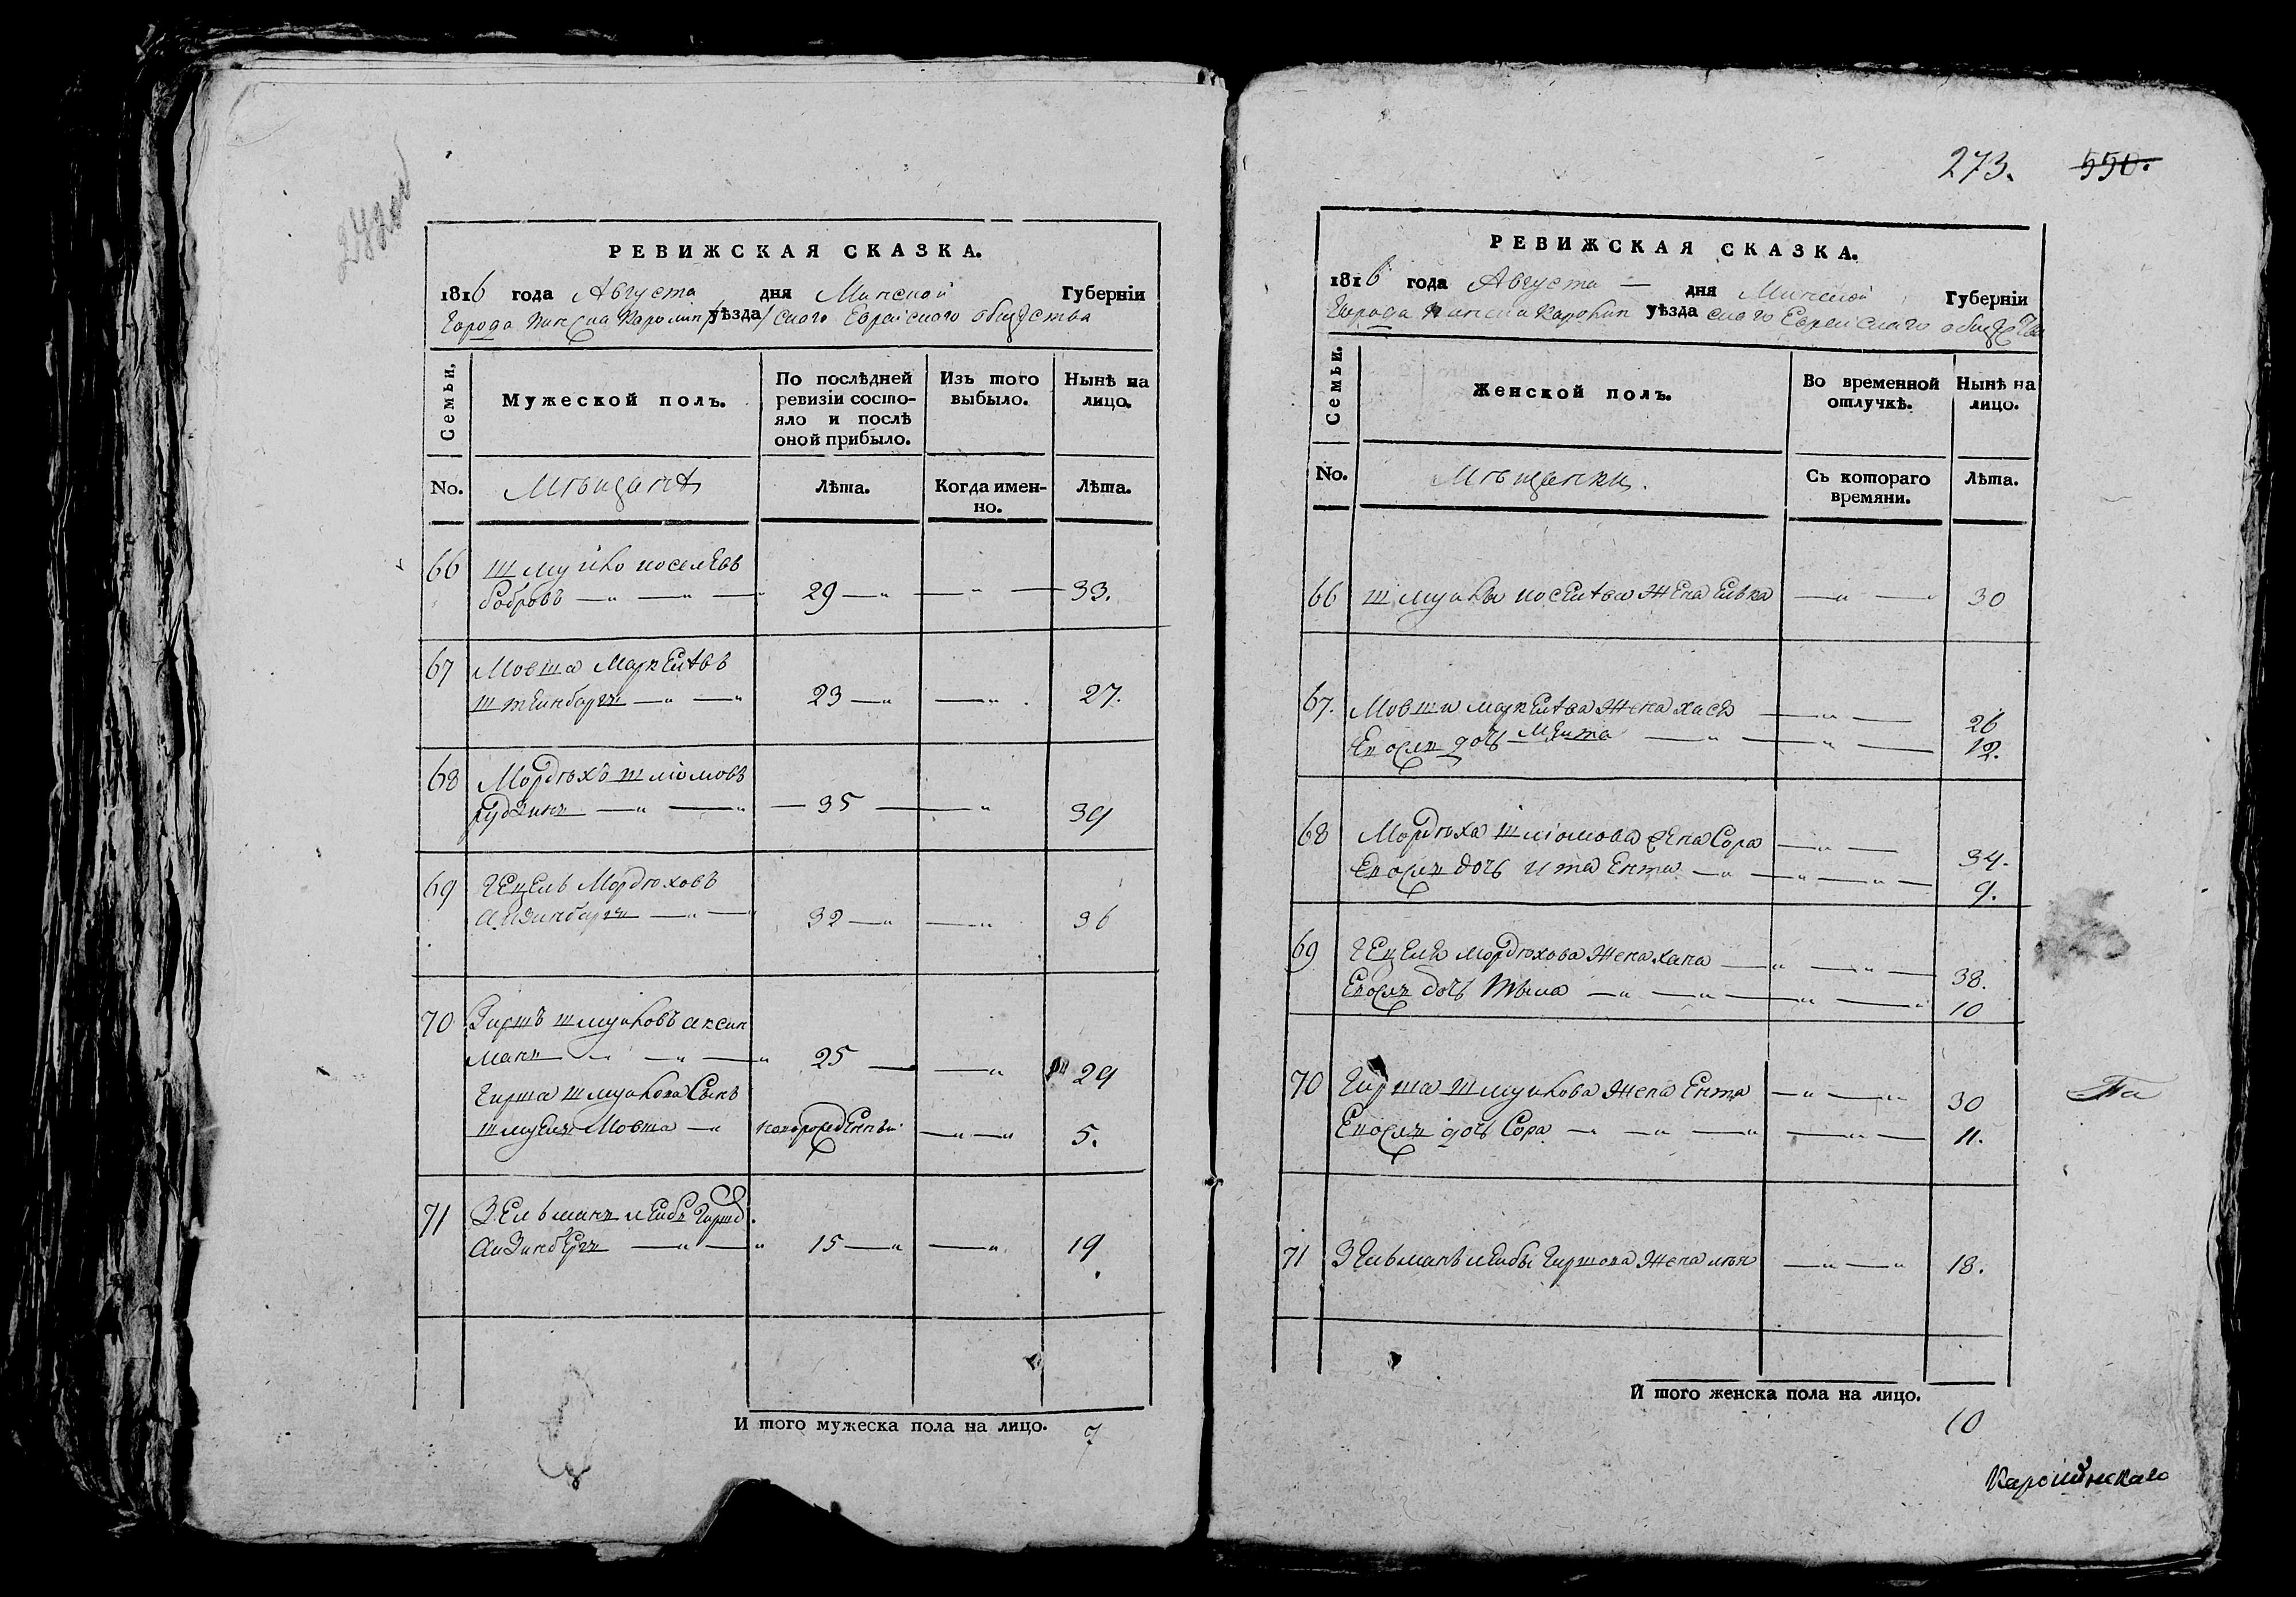 РЕВИЖСКАЯ СКАЗКА.
1816 года Августа дня Минской Губерніи
Города Пинска Каролин уѣзда ского Еврейского общества
Семьи.
Мужеской полъ.
По послѣдней ревизіи состояло и послѣ оной прибыло.
Изъ того выбыло.
Нынѣ на лицо.
No.
Мѣщанѣ
Лѣта.
Когда именно.
Лѣта.
66 Шмуйло Иоселевъ
Бобровъ — 29 — 33.
67 Мовша Маркелевъ
Штеинбаргъ — 23 — 27.
68 Мордухъ Шліомовъ
— 35 — 39
69 Гецель Мордуховъ
Аизинбаргъ — 32 — 36
70 Гиршъ Шмуиловъ
манъ — 25 — 29
Гирша Шмуилова Сынъ
Шмуель Мовша — новорожденный — 5.
71 Зельманъ Леибъ Гиршов.
Аизинбергъ — 15 — 19
И того мужеска пола на лицо. 7
273. 550.
РЕВИЖСКАЯ СКАЗКА.
1816 года Августа — дня Минской Губерніи
Города Пинска Каролин уѣзда ского Еврейского общества
Семьи.
Женской полъ.
Во временной отлучкѣ.
Нынѣ на лицо.
No.
Мѣщанки.
Съ котораго времяни.
Лѣта.
66 Шмуилы Иоселева Жена Елька — 30
67. Мовши Маркелева Жена Хася — 26
дочь — 12.
68 Мордуха Шліомова Жена Сора — 34.
дочь Ита Ента — 9.
69 Гецеля Мордухова Жена Хана — 38.
дочь — 10
70 Гирша Шмуилова Жена Ента — 30
дочь Сора — 11.
71 Зельманъ Леибы Гиршова Жена — 18.
И того женска пола на лицо.
10
Каролинскаго